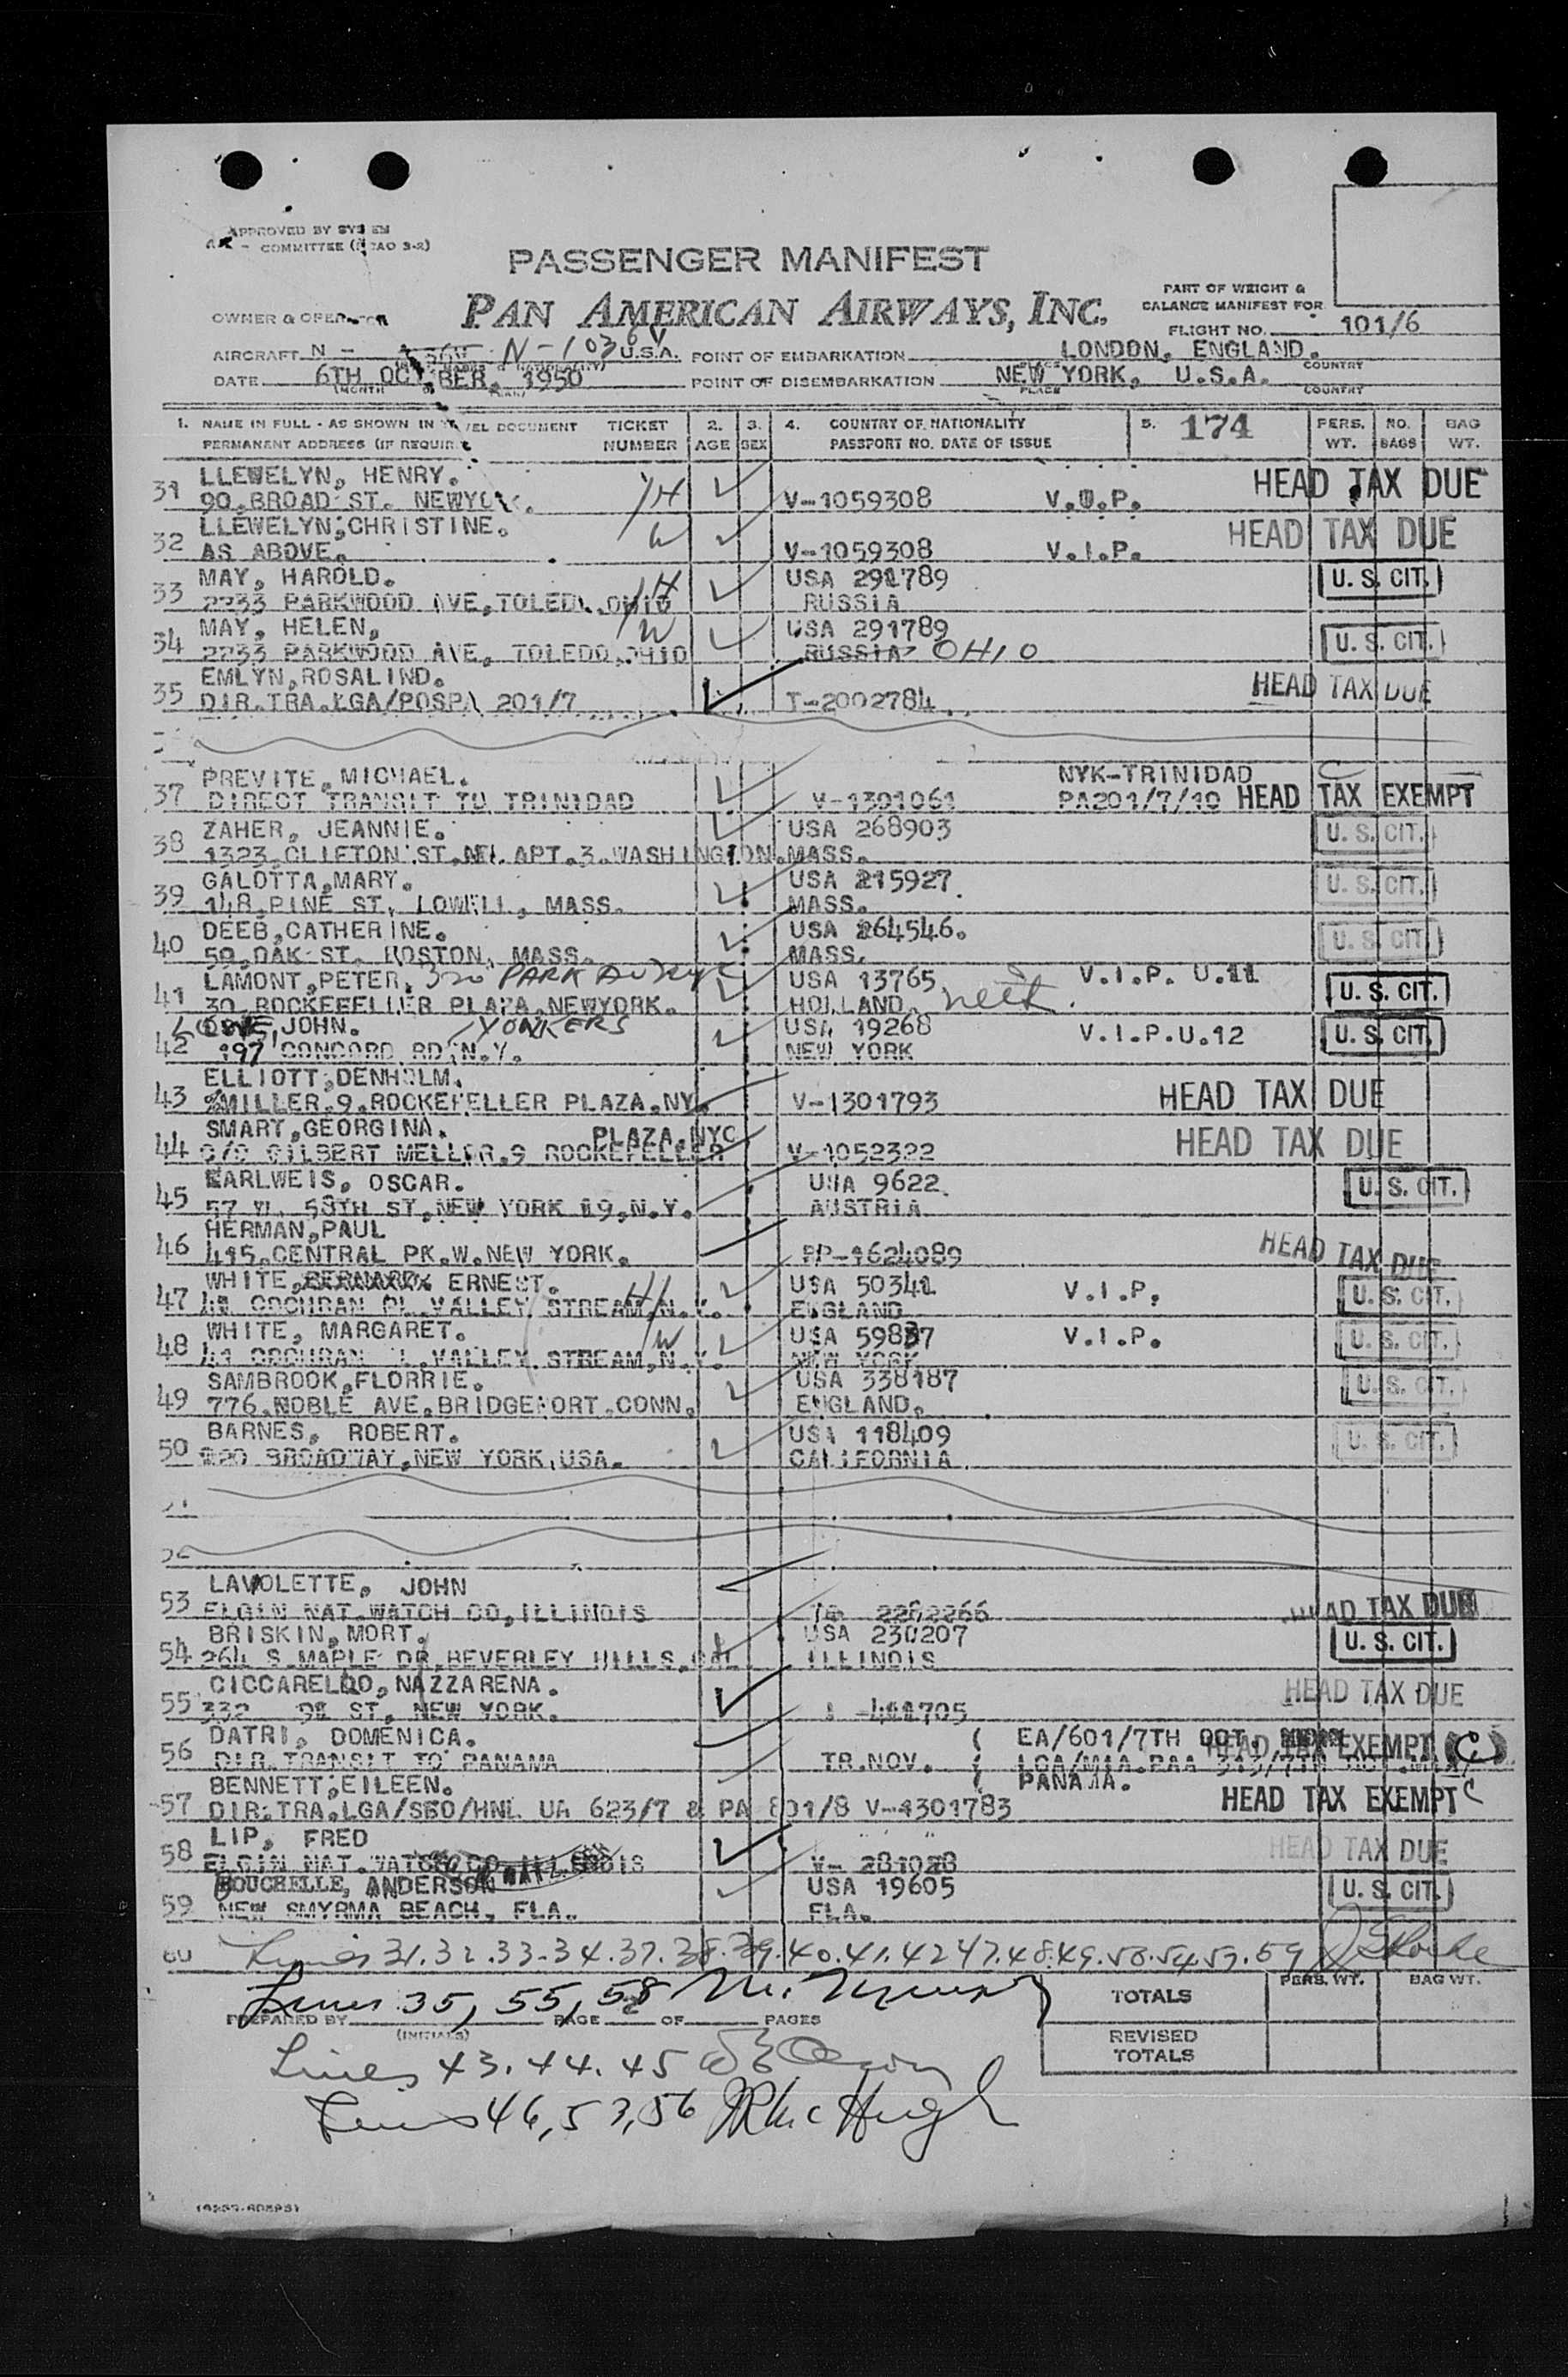 APPROVED BY SYSTEM
COMMITTEE
PASSENGER MANIFEST
PAN AMERICAN AIRWAYS, INC.
PART OF WEIGHT &
BALANCE MANIFEST FOR
OWNER & OPERATOR
FLIGHT NO. 101/6
AIRCRAFT N - N-1036V U.S.A. POINT OF EMBARKATION LONDON, ENGLAND.
COUNTRY
DATE 6TH OCTOBER, 1950 POINT OF DISEMBARKATION NEW YORK, U.S.A.
PLACE COUNTRY
1. NAME IN FULL - AS SHOWN IN TRAVEL DOCUMENT TICKET 2. 3. 4. COUNTRY OF NATIONALITY 5. 174 PERS. NO. BAG
PERMANENT ADDRESS (IF REQUIRED NUMBER AGE SEX PASSPORT NO. DATE OF ISSUE WT. BAGS WT.
LLEWELYN, HENRY. HEAD TAX DUE
31 90.BROAD ST. NEWYORK. H V-1059308
LLEWELYN,CHRISTINE. HEAD TAX DUE
32 AS ABOVE. W V-1059308 V.I.P.
MAY, HAROLD. USA 291789 U.S. CIT.
33 2233 PARKWOOD AVE,TOLEDO,OHIO H RUSSIA
MAY, HELEN, W USA 291789 U.S. CIT.
34 2233 PARKWOOD AVE, TOLEDO,OHIO RUSSIA OHIO
EMLYN,ROSALIND. HEAD TAX DUE
35 DIR.TRA.LGA/POSPA 201/7 T-2002784
PREVITE,MICHAEL. NYK-TRINIDAD C
37 DIRECT TRANSIT TO TRINIDAD V-1301061 PA201/7/10 HEAD TAX EXEMPT
ZAHER, JEANNIE. USA 268903 U.S. CIT.
38 1323,CLIFTON ST.NW. APT.3.WASHINGTON.MASS.
GALOTTA,MARY. USA 215927 U.S. CIT.
39 148.PINE ST, LOWELL, MASS. MASS.
DEEB,CATHERINE. USA 264546. U.S. CIT.
40 59.OAK ST. BOSTON, MASS. MASS.
LAMONT,PETER, 320 PARK AV NYC USA 13765 V.I.P. U.11
41 30 ROCKEFELLER PLAZA,NEWYORK. HOLLAND. U.S. CIT.
JOHN. YONKERS USA 19268 V.I.P.U.12 U.S. CIT.
42 197 CONCORD RD,N.Y. NEW YORK
ELLIOTT,DENHOLM.
43 %MILLER.9.ROCKEFELLER PLAZA.NY. V-1301793 HEAD TAX DUE
SMART,GEORGINA. PLAZA,NYC HEAD TAX DUE
44 C/O GILBERT MELLER.9 ROCKEFELLER V-1052322
KARLWEIS, OSCAR. USA 9622. U.S. CIT.
45 57 W. 58TH ST,NEW YORK 19,N.Y. AUSTRIA
HERMAN,PAUL HEAD TAX DUE
46 415.CENTRAL PK.W.NEW YORK. PP-1624089
WHITE, ERNEST. H USA 50341 V.I.P. U.S. CIT.
47 41 COCHRAN PL.VALLEY STREAM,N.Y. ENGLAND
WHITE, MARGARET. W USA 59837 V.I.P. U.S. CIT.
48 41 COCHRAN PL.VALLEY STREAM,N.Y. NEW YORK
SAMBROOK,FLORRIE. USA 338187 U.S. CIT.
49 776.NOBLE AVE.BRIDGEPORT.CONN. ENGLAND.
BARNES, ROBERT. USA 118409 U.S. CIT.
50 BROADWAY,NEW YORK,USA. CALIFORNIA.
LAVOLETTE, JOHN
53 ELGIN NAT.WATCH CO,ILLINOIS 2262266 HEAD TAX DUE
BRISKIN,MORT. USA 230207 U.S. CIT.
54 264 S.MAPLE DR,BEVERLEY HILLS,CAL. ILLINOIS
CICCARELLO,NAZZARENA. HEAD TAX DUE
55 332 ST, NEW YORK. 411705
DATRI, DOMENICA. EA/601/7TH OCT.
56 DIR.TRANSIT TO PANAMA TR.NOV. LGA/MIA.PAA EXEMPT C
BENNETT,EILEEN. PANAMA.
57 DIR.TRA.LGA/SFO/HNL UA 623/7 & PA 801/8 V-1301783 HEAD TAX EXEMPT C
LIP, FRED HEAD TAX DUE
58 ELGIN NAT.WATCH CO ILLINOIS V- 281028
BOUCHELLE, ANDERSON USA 19605 U.S. CIT.
59 NEW SMYRMA BEACH, FLA. FLA.
60 Lines 31.32.33.34.37.38.39.40.41.42 47.48.49.50.54.57.59
Lines 35, 55, 58
PREPARED BY PAGE 2 OF PAGES
(INITIALS)
TOTALS PERS. WT. BAG WT.
REVISED
TOTALS
Lines 43.44.45
Lines 46, 53, 56 McHugh